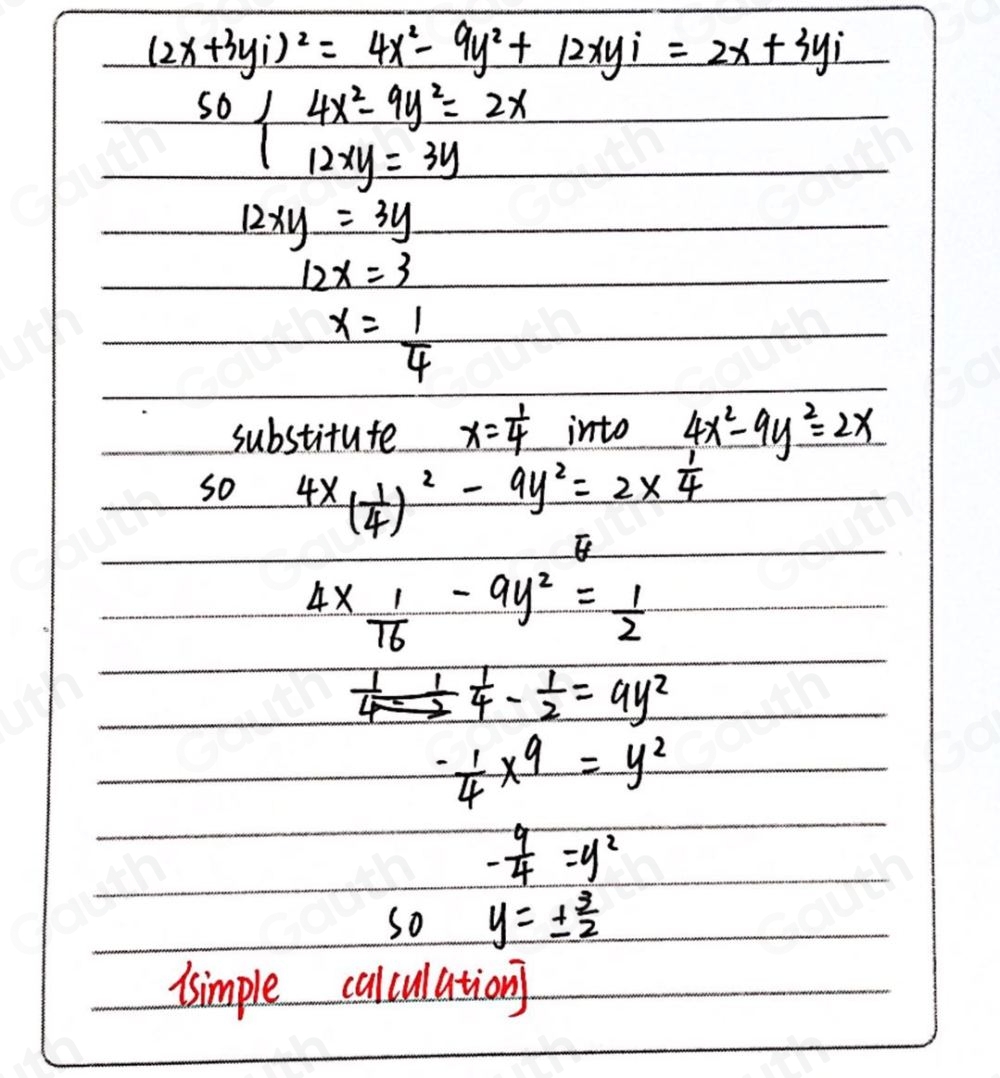 (2x+3yi)² = 4x² - 9y² + 12xyi = 2x + 3yi
so { 4x² - 9y² = 2x
12xy = 3y
12xy = 3y
12x = 3
x = 1/4
substitute x = 1/4 into 4x² - 9y² = 2x
so 4×(1/4)² - 9y² = 2 × 1/4
4 × 1/16 - 9y² = 1/2
1/4 - 1/2 = 9y²
-1/4 × 9 = y²
-9/4 = y²
so y = ± 3/2
{simple calculation}
Gauth